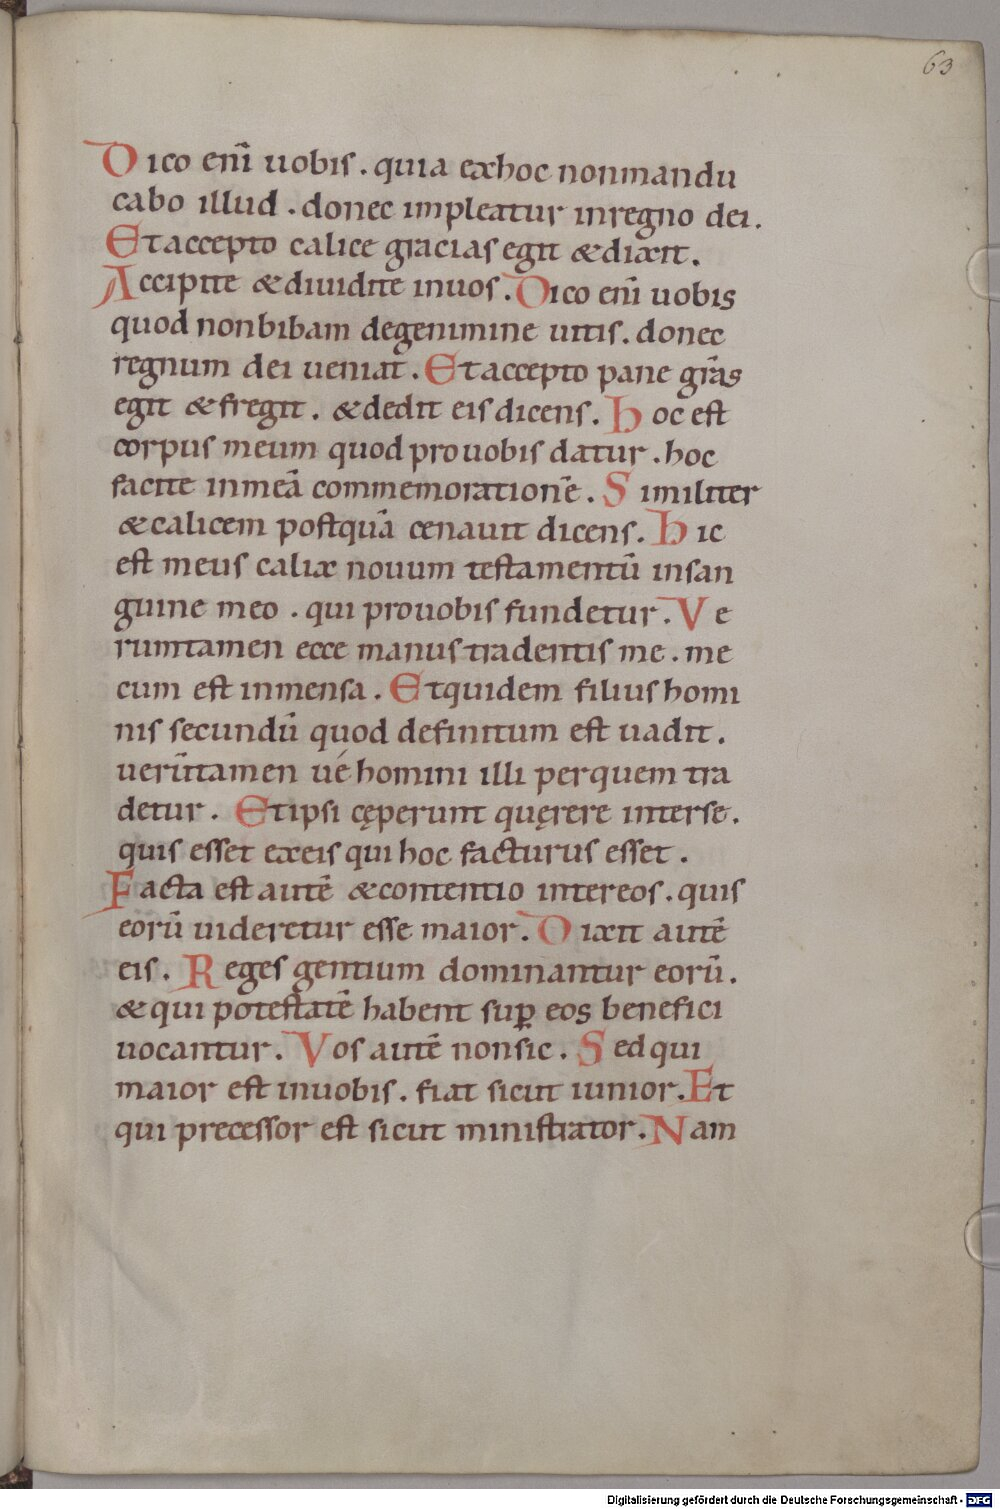 63
Dico enī uobis . quia exhoc nonmandu
cabo illud . donec impleatur inregno dei .
Et accepto calice gracias egit & dixit .
Accipite & diuidite inuos . Dico enī uobis
quod nonbibam degenimine uitis . donec
regnum dei ueniat . Et accepto pane grās
egit & fregit . & dedit eis dicens . Hoc est
corpus meum quod prouobis datur . hoc
facite inmeā commemorationē . Similiter
& calicem postquā cenauit dicens . Hic
est meus calix nouum testamentū insan
guine meo . qui prouobis fundetur . Ve
rumtamen ecce manus tradentis me . me
cum est inmensa . Et quidem filius homi
nis secundū quod definitum est uadit .
uerūtamen ué homini illi perquem tra
detur . Et ipsi cęperunt quęrere interse .
quis esset exeis qui hoc facturus esset .
Facta est autē & contentio intereos . quis
eorū uideretur esse maior . Dixit autē
eis . Reges gentium dominantur eorū .
& qui potestatē habent sup̱ eos benefici
uocantur . Vos autē nonsic . Sed qui
maior est inuobis . fiat sicut iunior . Et
qui precessor est sicut ministrator . Nam
Digitalisierung gefördert durch die Deutsche Forschungsgemeinschaft - DFG